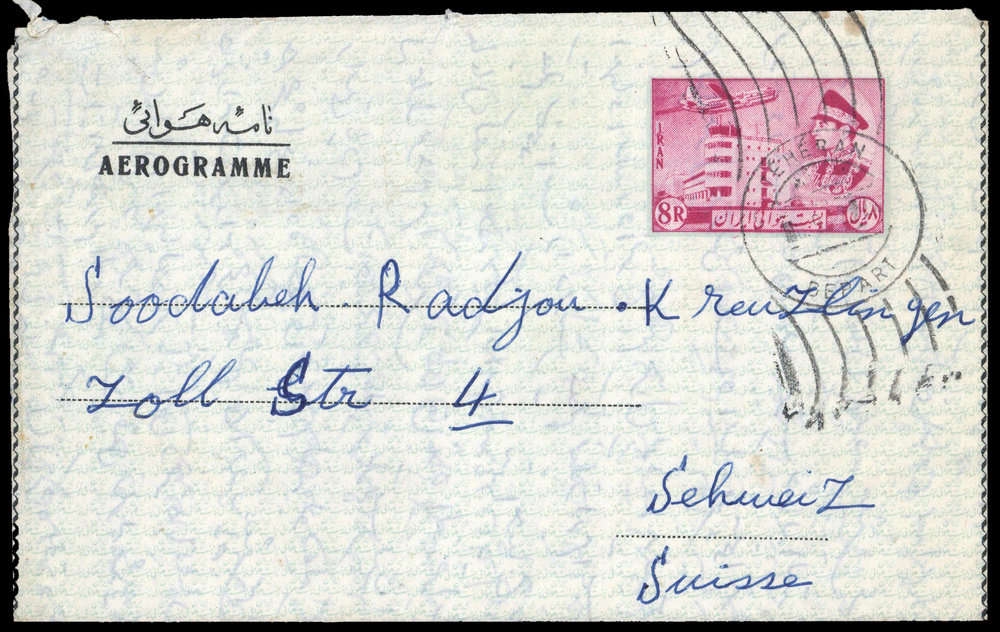 نامه هوائی
AEROGRAMME
IRAN
8R
پست هوائی ایران
۸ ریال
TEHERAN
DEPART
Soodabeh . Radjou . Kreuzlingen
Zoll Str 4
Schweiz
Suisse